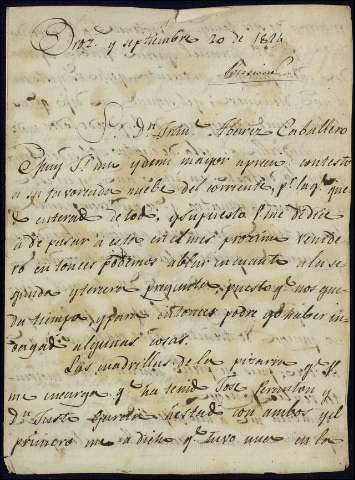 y septiembre 20 de 1824
Sr. Dn Fran.
Caballero
Muy Sr. mio y de mi mayor apreci contesto
a su favorecida nuebe del corriente, pr la q. que
de enterad de tod. y supuesto q. me dice
a de pasar a esta en el mes proximo venide
ro entonces podremos ablar en cuanto a la se
gunda y tercera pregunta, puesto q. nos que
da tiempo, y para entonces podre yo haber in
dagad algunas cosas.
Las quadrillas de la pizarra q. V.
me encarga y q. ha tenid Jose
y Dn Justo Garcia hestad con ambos y el
primero me a dich q. tuvo nuebe en la